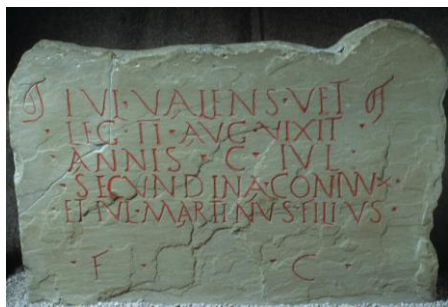 IVL·VALENS·VET
·LEG·II·AVG·VIXIT
·ANNIS·C·IVL·
·SECVNDINA·CONIVNX
ET·IVL·MARTINVS·FILIVS·
·F·C·